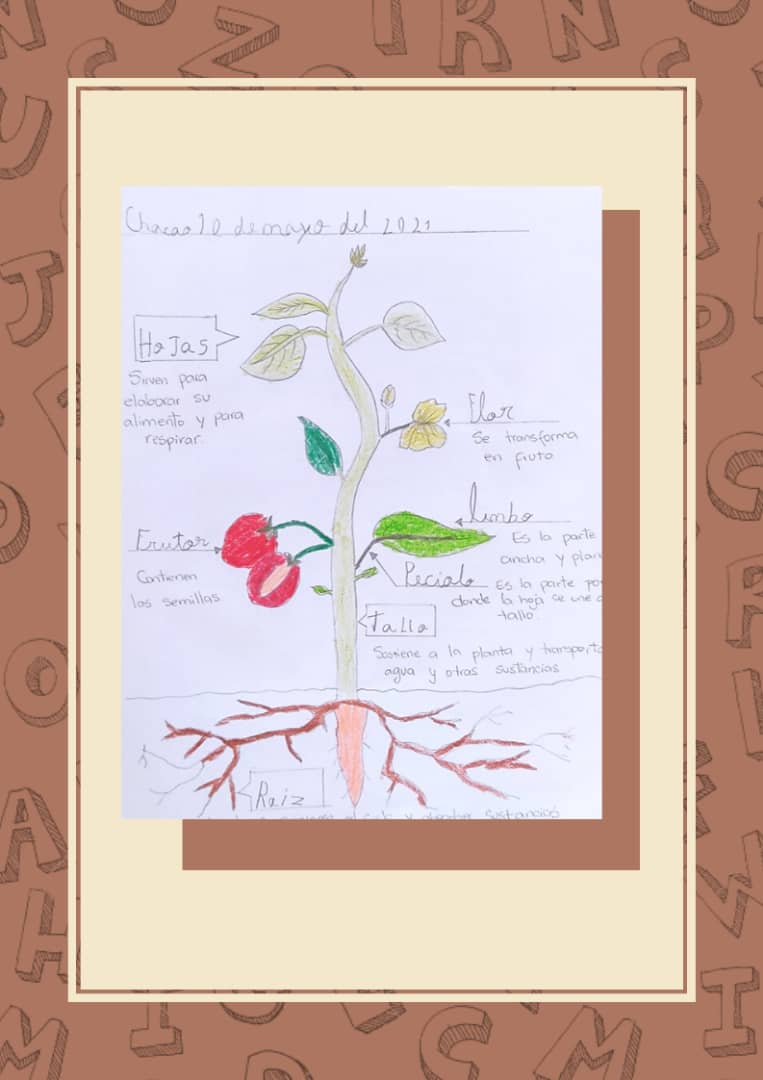 Chacao 10 de mayo del 2021
Hojas
Sirven para
elaborar su
alimento y para
respirar.
Flor
Se transforma
en fruto
limbo
Es la parte
ancha y plan
Frutos
Contienen
las semillas
Peciolo
Es la parte po
donde la hoja se une a
tallo.
Tallo
Sostiene a la planta y transporta
agua y otras sustancias
Raiz
y absorber sustancias